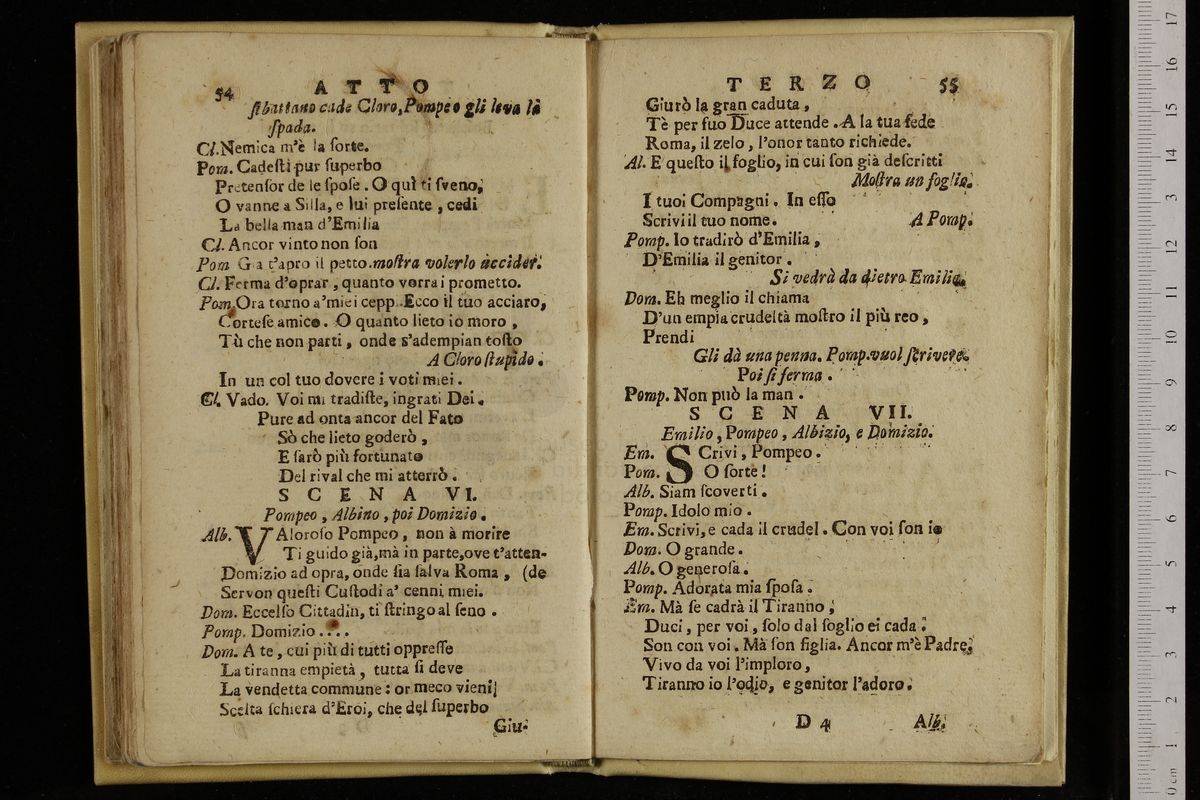 54 ATTO
ſi battano cade Cloro, Pompeo gli leva la
ſpada.
Cl. Nemica m'è la ſorte.
Pom. Cadeſti pur ſuperbo
Pretenſor de le ſpoſe. O quì ti ſveno,
O vanne a Silla, e lui preſente, cedi
La bella man d'Emilia
Cl. Ancor vinto non ſon
Pom Gia t'apro il petto. moſtra volerlo accider.
Cl. Ferma d'oprar, quanto vorrai prometto.
Pom. Ora torno a' miei cepp. Ecco il tuo acciaro,
Corteſe amico. O quanto lieto io moro,
Tù che non parti, onde s'adempian toſto
A Cloro ſtupido.
In un col tuo dovere i voti miei.
Cl. Vado. Voi mi tradiſte, ingrati Dei.
Pure ad onta ancor del Fato
Sò che lieto goderò,
E ſarò più fortunato
Del rival che mi atterrò.
SCENA VI.
Pompeo, Albino, poi Domizio.
Alb. VAloroſo Pompeo, non à morire
Ti guido già, mà in parte, ove t'atten-
Domizio ad opra, onde ſia ſalva Roma, (de
Servon queſti Cuſtodi a' cenni miei.
Dom. Eccelſo Cittadin, ti ſtringo al ſeno.
Pomp. Domizio....
Dom. A te, cui più di tutti oppreſſe
La tiranna empietà, tutta ſi deve
La vendetta commune: or meco vieni;
Scelta ſchiera d'Eroi, che del ſuperbo
Giu-
TERZO 55
Giurò la gran caduta,
Tè per ſuo Duce attende. A la tua fede
Roma, il zelo, l'onor tanto richiede.
Al. E queſto il foglio, in cui ſon già deſcritti
Moſtra un foglio.
I tuoi Compagni. In eſſo
Scrivi il tuo nome. A Pomp.
Pomp. Io tradirò d'Emilia,
D'Emilia il genitor.
Si vedrà da dietro Emilia.
Dom. Eh meglio il chiama
D'un empia crudeltà moſtro il più reo,
Prendi
Gli dà una penna. Pomp. vuol ſcrivere.
Poi ſi ferma.
Pomp. Non può la man.
SCENA VII.
Emilio, Pompeo, Albizio, e Domizio.
Em. SCrivi, Pompeo.
Pom. O ſorte!
Alb. Siam ſcoverti.
Pomp. Idolo mio.
Em. Scrivi, e cada il crudel. Con voi ſon io
Dom. O grande.
Alb. O generoſa.
Pomp. Adorata mia ſpoſa.
Em. Mà ſe cadrà il Tiranno,
Duci, per voi, ſolo dal ſoglio ei cada.
Son con voi. Mà ſon figlia. Ancor m'è Padre,
Vivo da voi l'imploro,
Tiranno io l'odio, e genitor l'adoro.
D 4 Alb.
0 cm 1 2 3 4 5 6 7 8 9 10 11 12 13 14 15 16 17